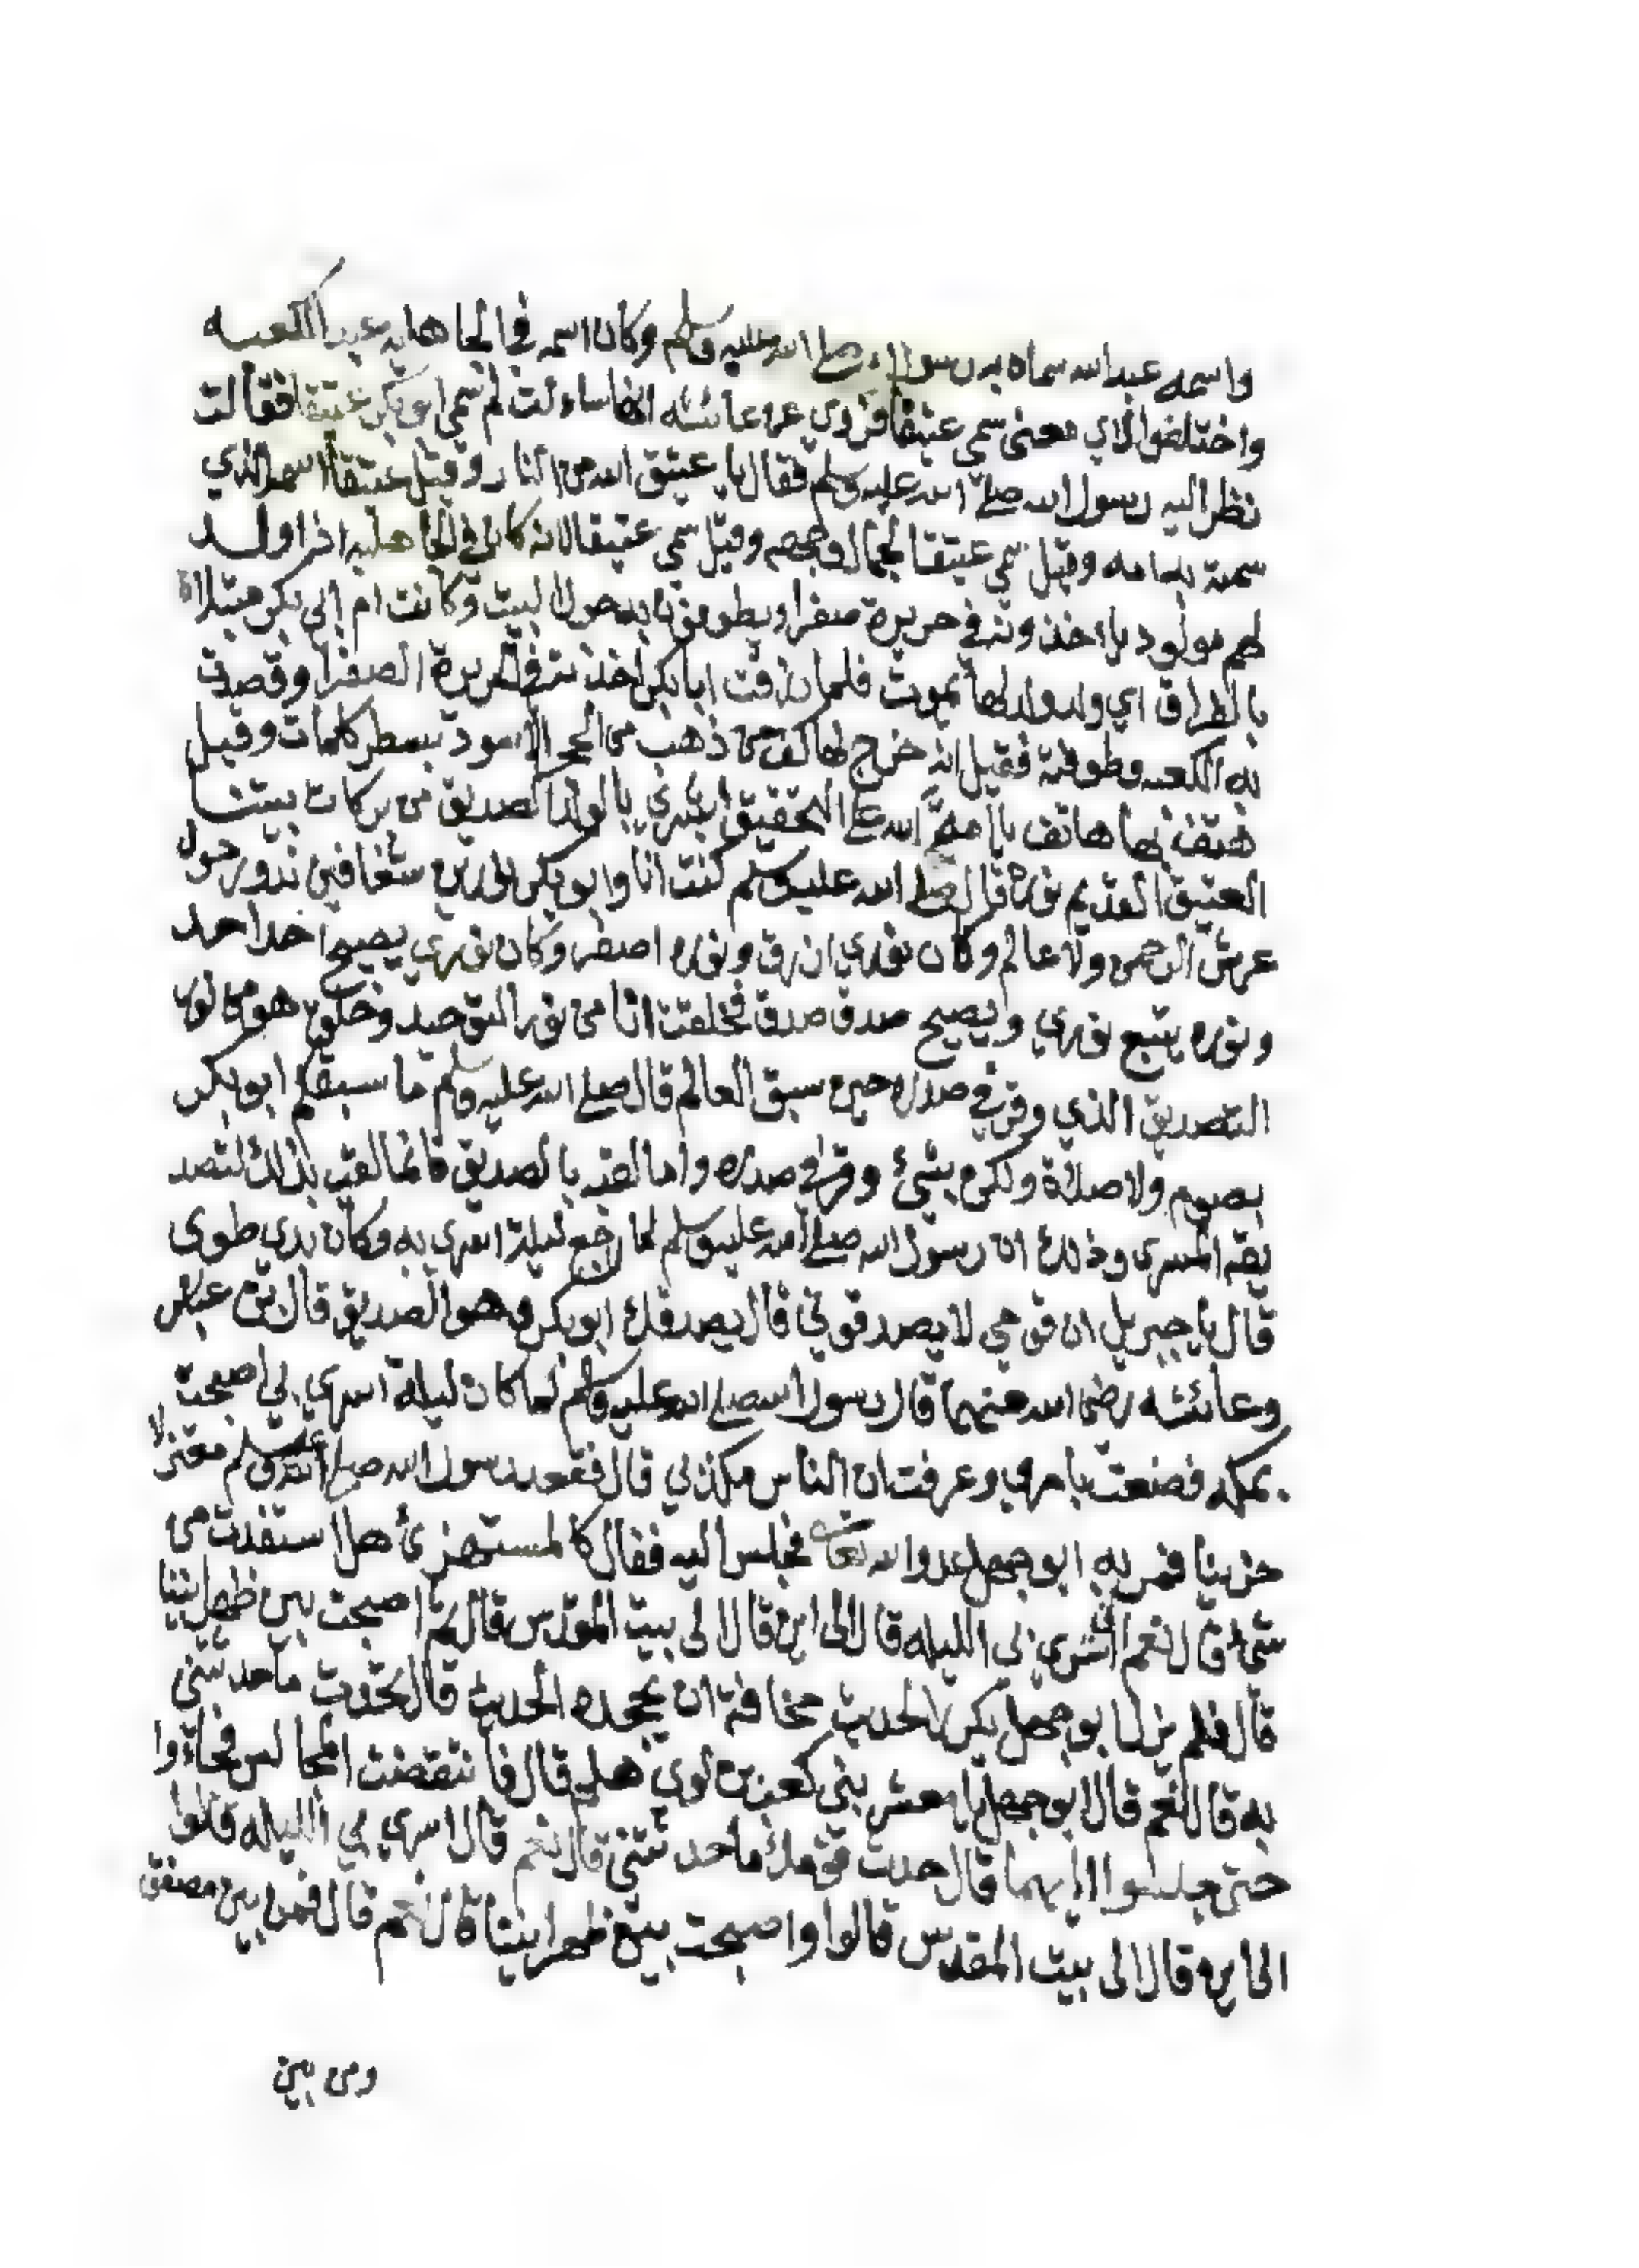 واسمه عبدالله سماه به رسول الله صلى الله عليه وسلم وكان اسمه في الجاهلية عبد الكعبه
واختلفوا لاي معنى سمي عتيقا فروي عن عائشه انها سالت لم سمي ابو بكر عتيقا فقالت
نظر اليه رسول الله صلى الله عليه وسلم فقال يا عتيق الله من النار وقيل عتيقا اسمه الذي
سمته به امه وقيل سمي عتيقا لجمال وجهه وقيل سمي عتيقا لانه كان في الجاهليه اذا ولد
لهم مولود ياخذونه في حريرة صفرا ويطوفون به حول البيت وكانت ام ابي بكر مبتلاة
بالطراق اي ولد ولد لها يموت فلما رزقت ابا بكر اخذته في الحريرة الصفرا وقصدت
به الكعبه وطوفته فقيل انه خرج لها كف من ذهب من الحجر الاسود بسطر كلمات وقيل
هتف بها هاتف يا امة الله على التحقيق ابشري بالولد الصديق من بركات بيتنا
العتيق القديم نوره قال صلى الله عليه وسلم كنت انا وابو بكر نورين شفافين ندور حول
عرش الرحمن ولا عالم وكان نوري ازرق ونوره اصفر وكان نوري يصيح احد احد
ونوره يتبع نوري ويصيح صدق صدق فخلقت انا من نور التوحيد وخلق هو من نور
التصديق الذي وقر في صدره حين سبق العالم قال صلى الله عليه وسلم ما سبقكم ابو بكر
بصوم ولا صلاة ولكن بشئ وقر في صدره واما لقبه بالصديق فانما لقب بذلك لتصد
يقه المسرى وذلك ان رسول الله صلى الله عليه وسلم لما رجع ليلة اسري به وكان بذي طوى
قال يا جبريل ان قومي لا يصدقوني قال يصدقك ابو بكر وهو الصديق قال بن عباس
وعائشه رضى الله عنهما قال رسول الله صلى الله عليه وسلم لما كان ليلة اسري بي اصبحت
بمكه فضعت بامري وعرفت ان الناس مكذبي قال فقعد رسول الله صلى الله عليه وسلم معتزلا
حزينا فمر به ابو جهل عدو الله فجلس اليه فقال كالمستهزئ هل استفدت من
شئ قال نعم اسري بي الليله قال الى اين قال الى بيت المقدس قال ثم اصبحت بين ظهرانينا
قال فلم ينزل ابو جهل الحديث مخافة ان يجحده الحديث قال تحدث ما حدثتني
به قال نعم قال ابو جهل يا معشر بني كعب بن لوي هلم قال فانتقضت المجالس فجاءوا
حتى جلسوا اليهما قال حدث قومك ما حدثتني قال نعم قال اسري بي الليله قالوا
الى اين قال الى بيت المقدس قالوا واصبحت بين ظهرانينا قال نعم قال فمن بين مصفق
ومن بين